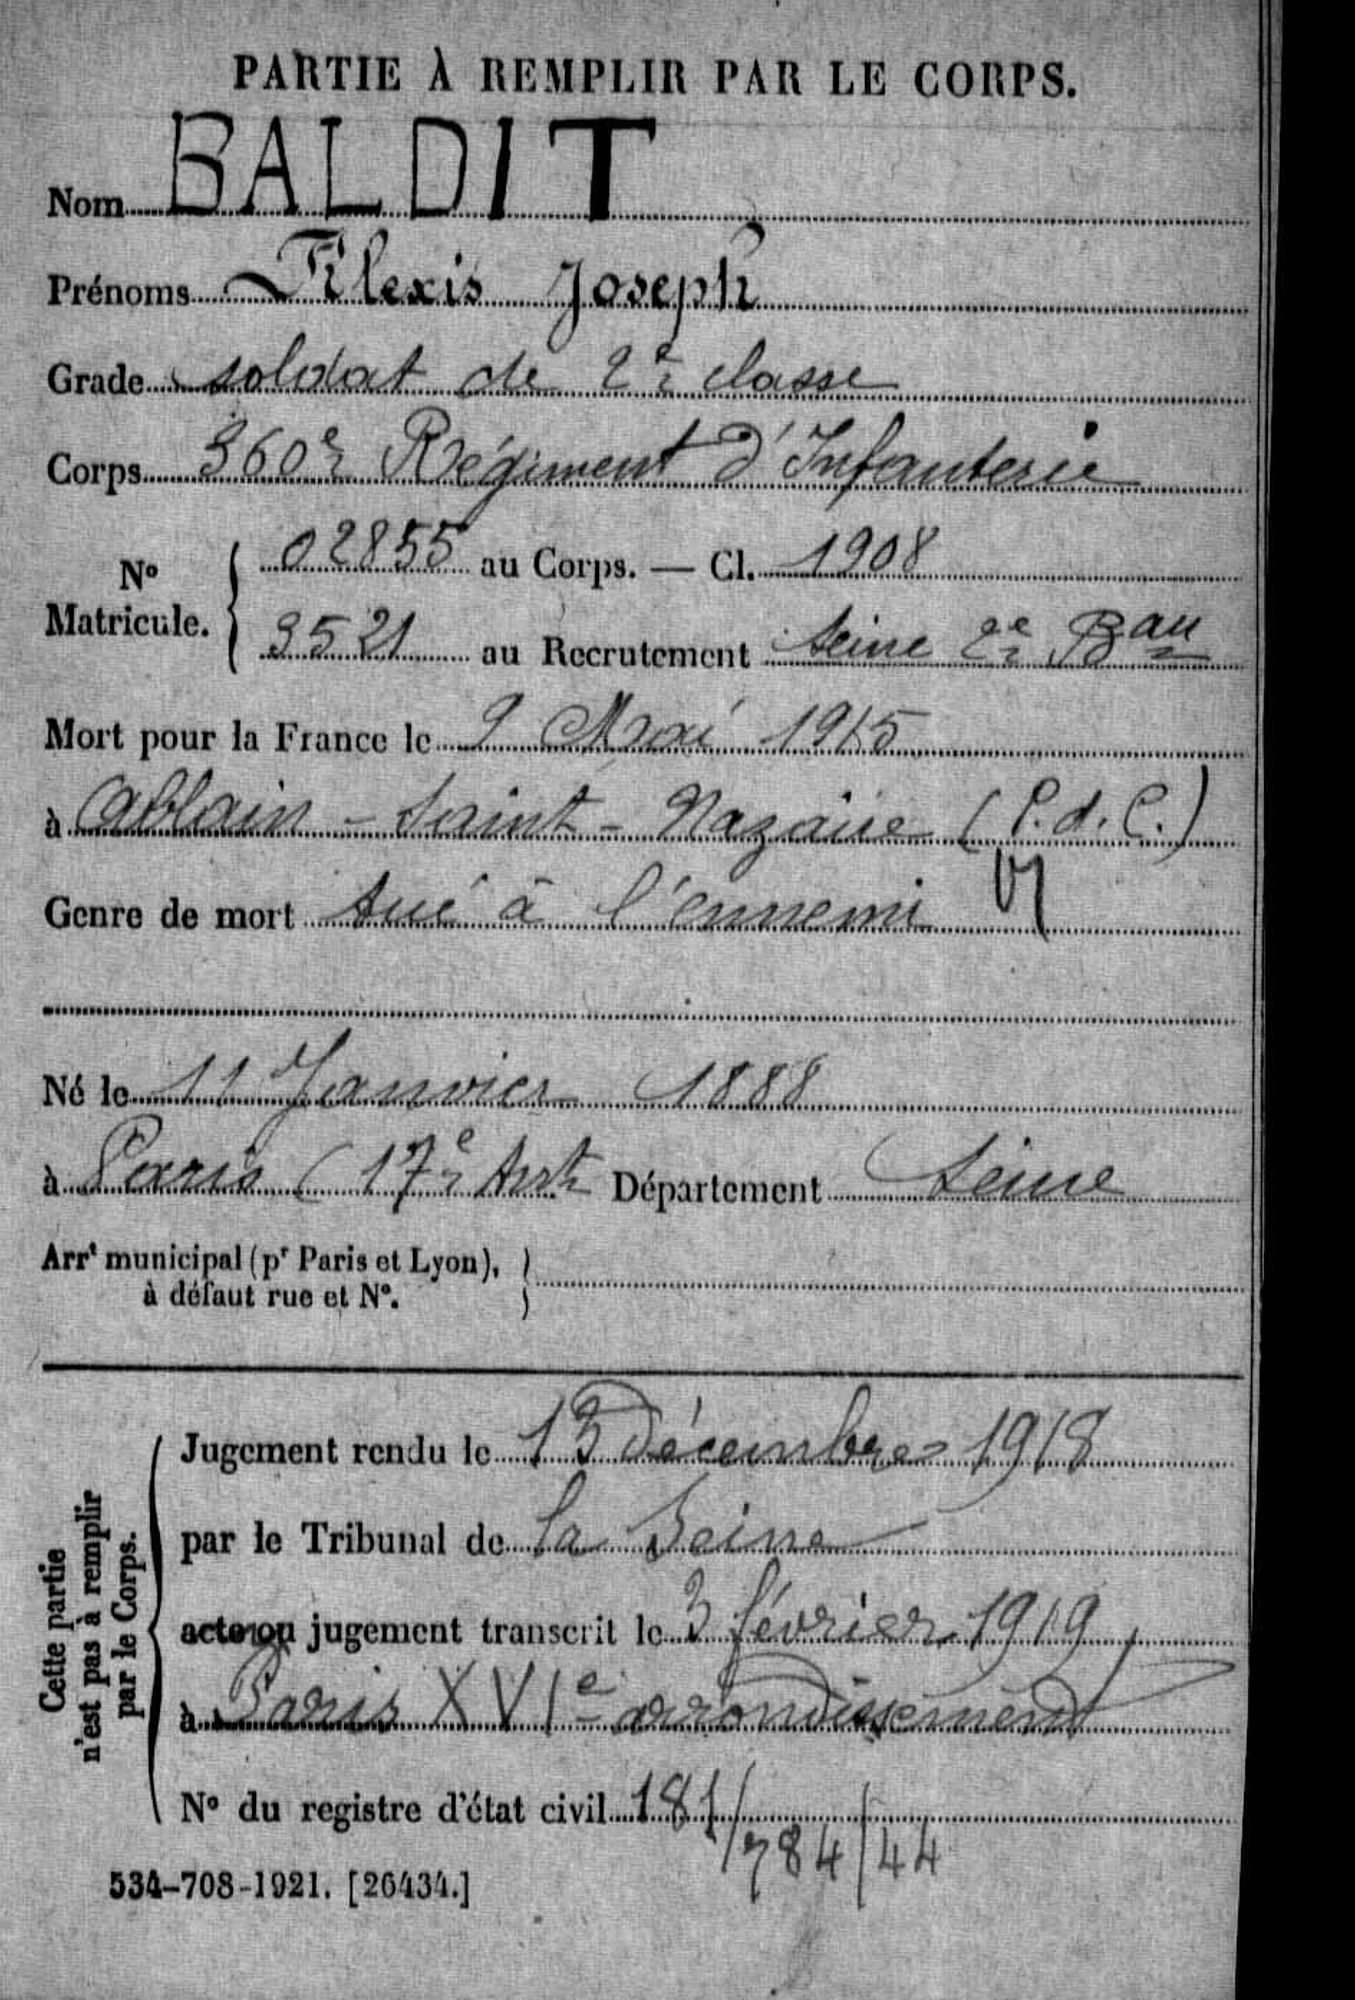 PARTIE À REMPLIR PAR LE CORPS.
Nom BALDIT
Prénoms Alexis Joseph
Grade soldat de 2e classe
Corps 360e Régiment d'Infanterie
No Matricule. { 02855 au Corps. — Cl. 1908
3521 au Recrutement Seine 2e Bau
Mort pour la France le 9 Mai 1915
à Ablain - Saint - Nazaire (P.d.C.)
Genre de mort tué à l'ennemi
Né le 11 Janvier 1888
à Paris (17e Arrt Département Seine
Arrt municipal (pr Paris et Lyon), à défaut rue et No. }
Cette partie n'est pas à remplir par le Corps.
Jugement rendu le 13 Décembre 1918
par le Tribunal de la Seine
acte ou jugement transcrit le 3 février 1919
à Paris XVIe arrondissement
No du registre d'état civil 181
784/44
534-708-1921. [26434.]